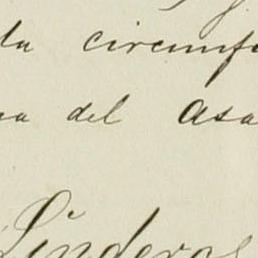 da circunf
a del Asa
Linderos